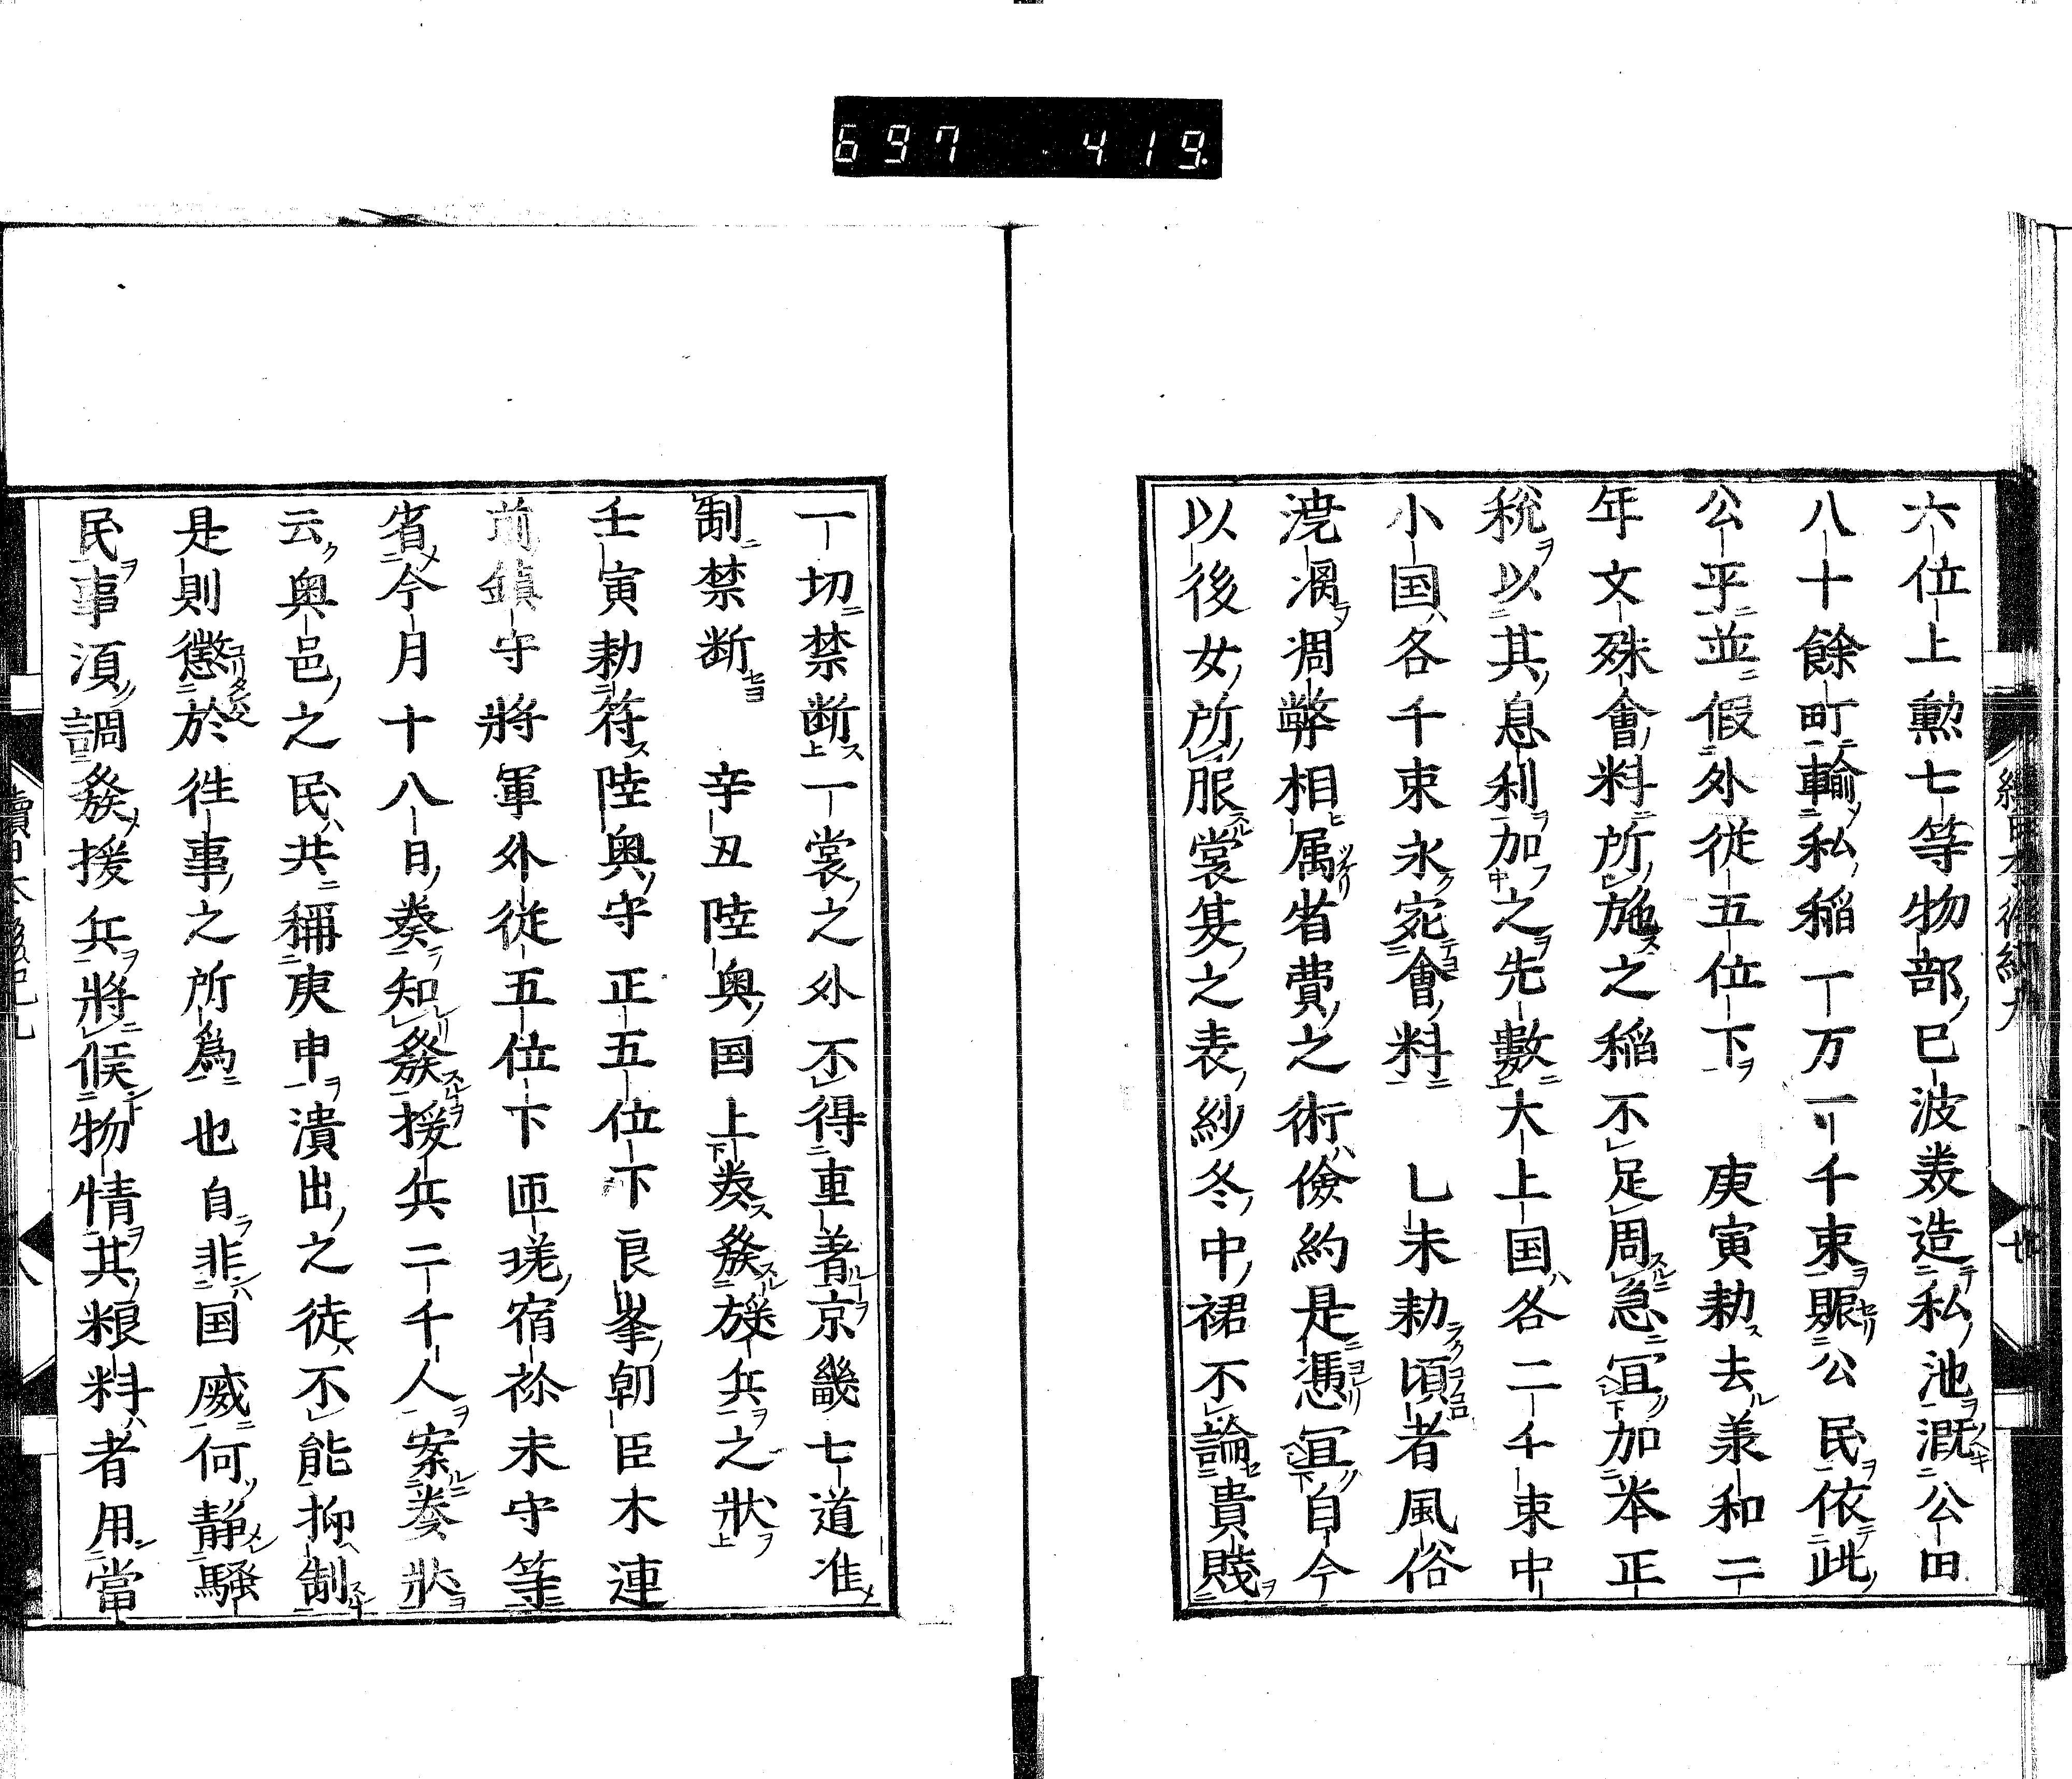 697 419.
六位上勲七等物部巳波美造私池漑公田
八十餘町輸私稲一万一千束賑公民依此
公平並假外従五位下　庚寅勅去羕和二
年文殊會料所施之稲不足周急冝加㐧正
税以其息利加之先數大上国各二千束中
小国各千束永宛會料　乚未勅頃者風俗
澆漓凋弊相属省費之術儉約是憑冝自今
以後女所服裳夏之表紗冬中裙不論貴賤
一切禁断一裳之外不得重著京畿七道准
制禁断　辛丑陸奥国上奏發援兵之状
壬寅勅符陸奥守正五位下良峯朝臣木連
前鎮守將軍外従五位下匝瑳宿祢末守等
省今月十八日奏知發援兵二千人案奏状
云奥邑之民共稱庚申潰出之徒不能抑制
是則懲於徃事之所為也自非国威何静騒
民事湏調發援兵將候物情其粮料者用當